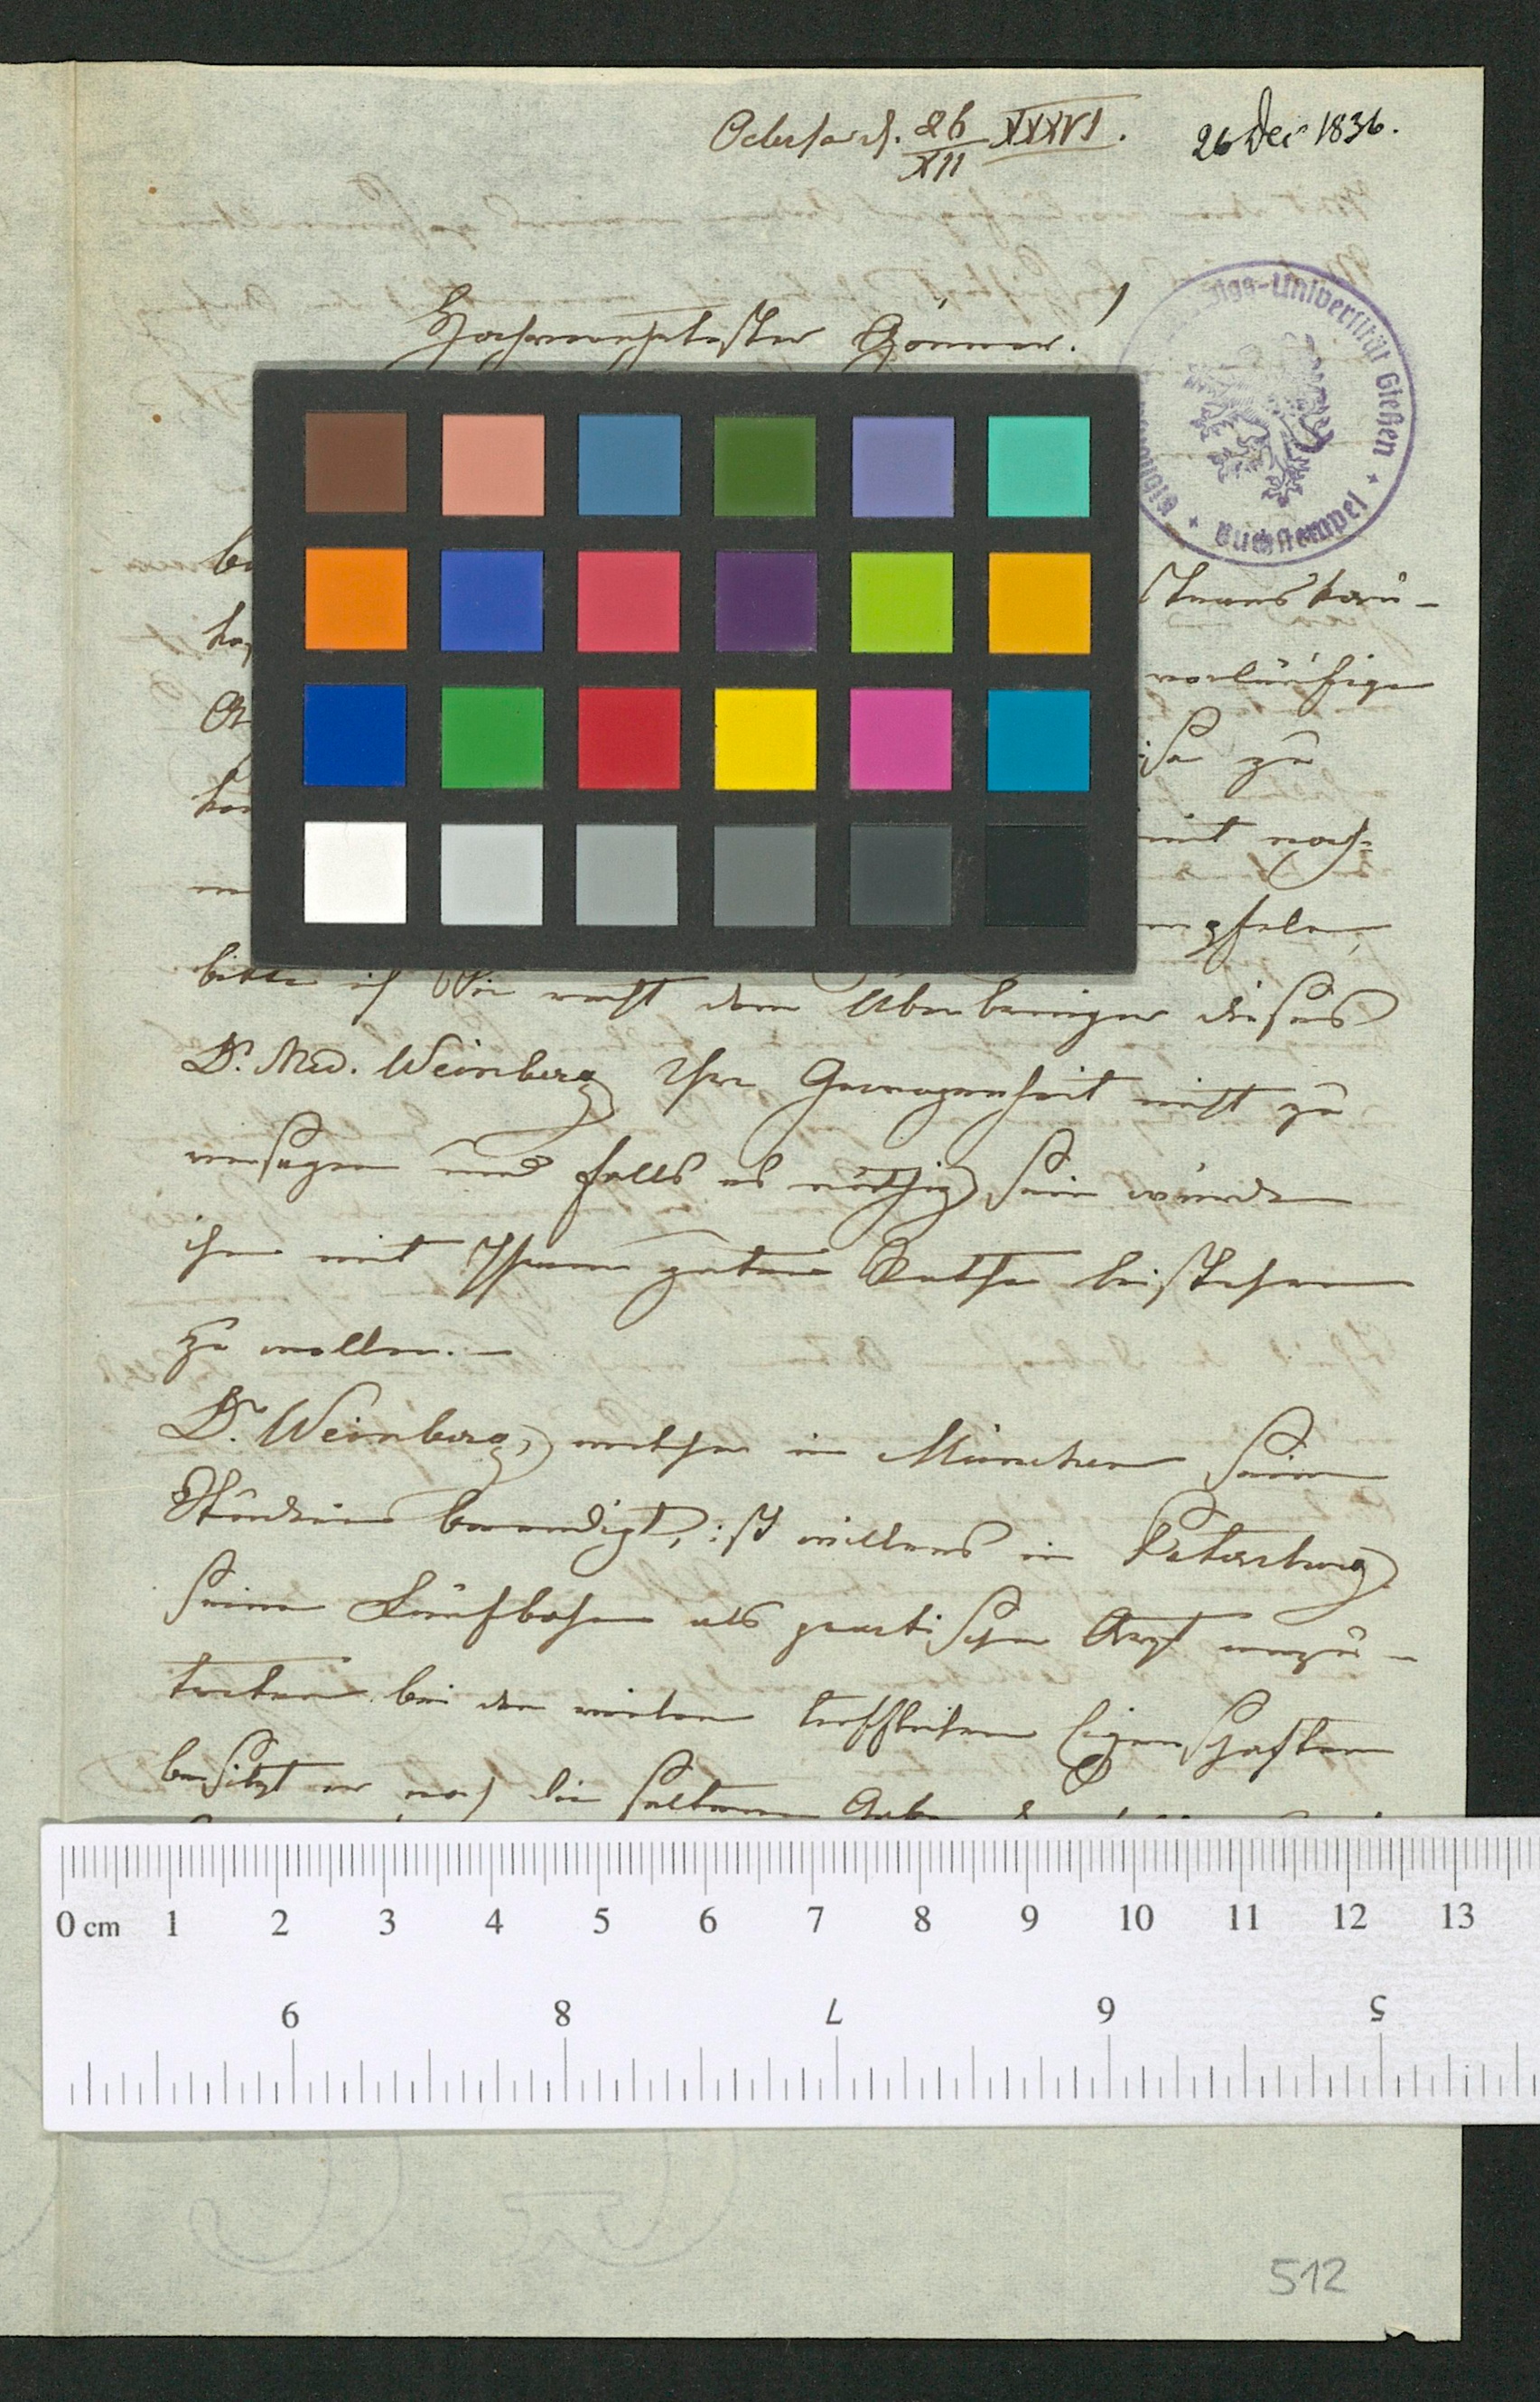 26 XXXVI. 26 Dec 1836.
XII
Hochverehrtester Gönner!
igs-Universität Gießen
Buchstempel
vorläufige
zu
mit noch-
empfelen,
bitte ich Sie recht dem Überbringer dieses
Dr. Med. Weinberg Ihre Gewogenheit nicht zu
versagen und falls es nöthig sein würde
ihm mit Ihrem guten Rathe beistehen
zu wollen. —
Dr. Weinberg, welcher in München seine
Studien beendigt, ist willens in Petersburg
seine Laufbahn als practischer Arzt anzu-
treten bei den vielen trefflichen Eigenschaften
besitzt er noch die seltene Gabe
0 cm 1 2 3 4 5 6 7 8 9 10 11 12 13
9 8 7 6 5
512